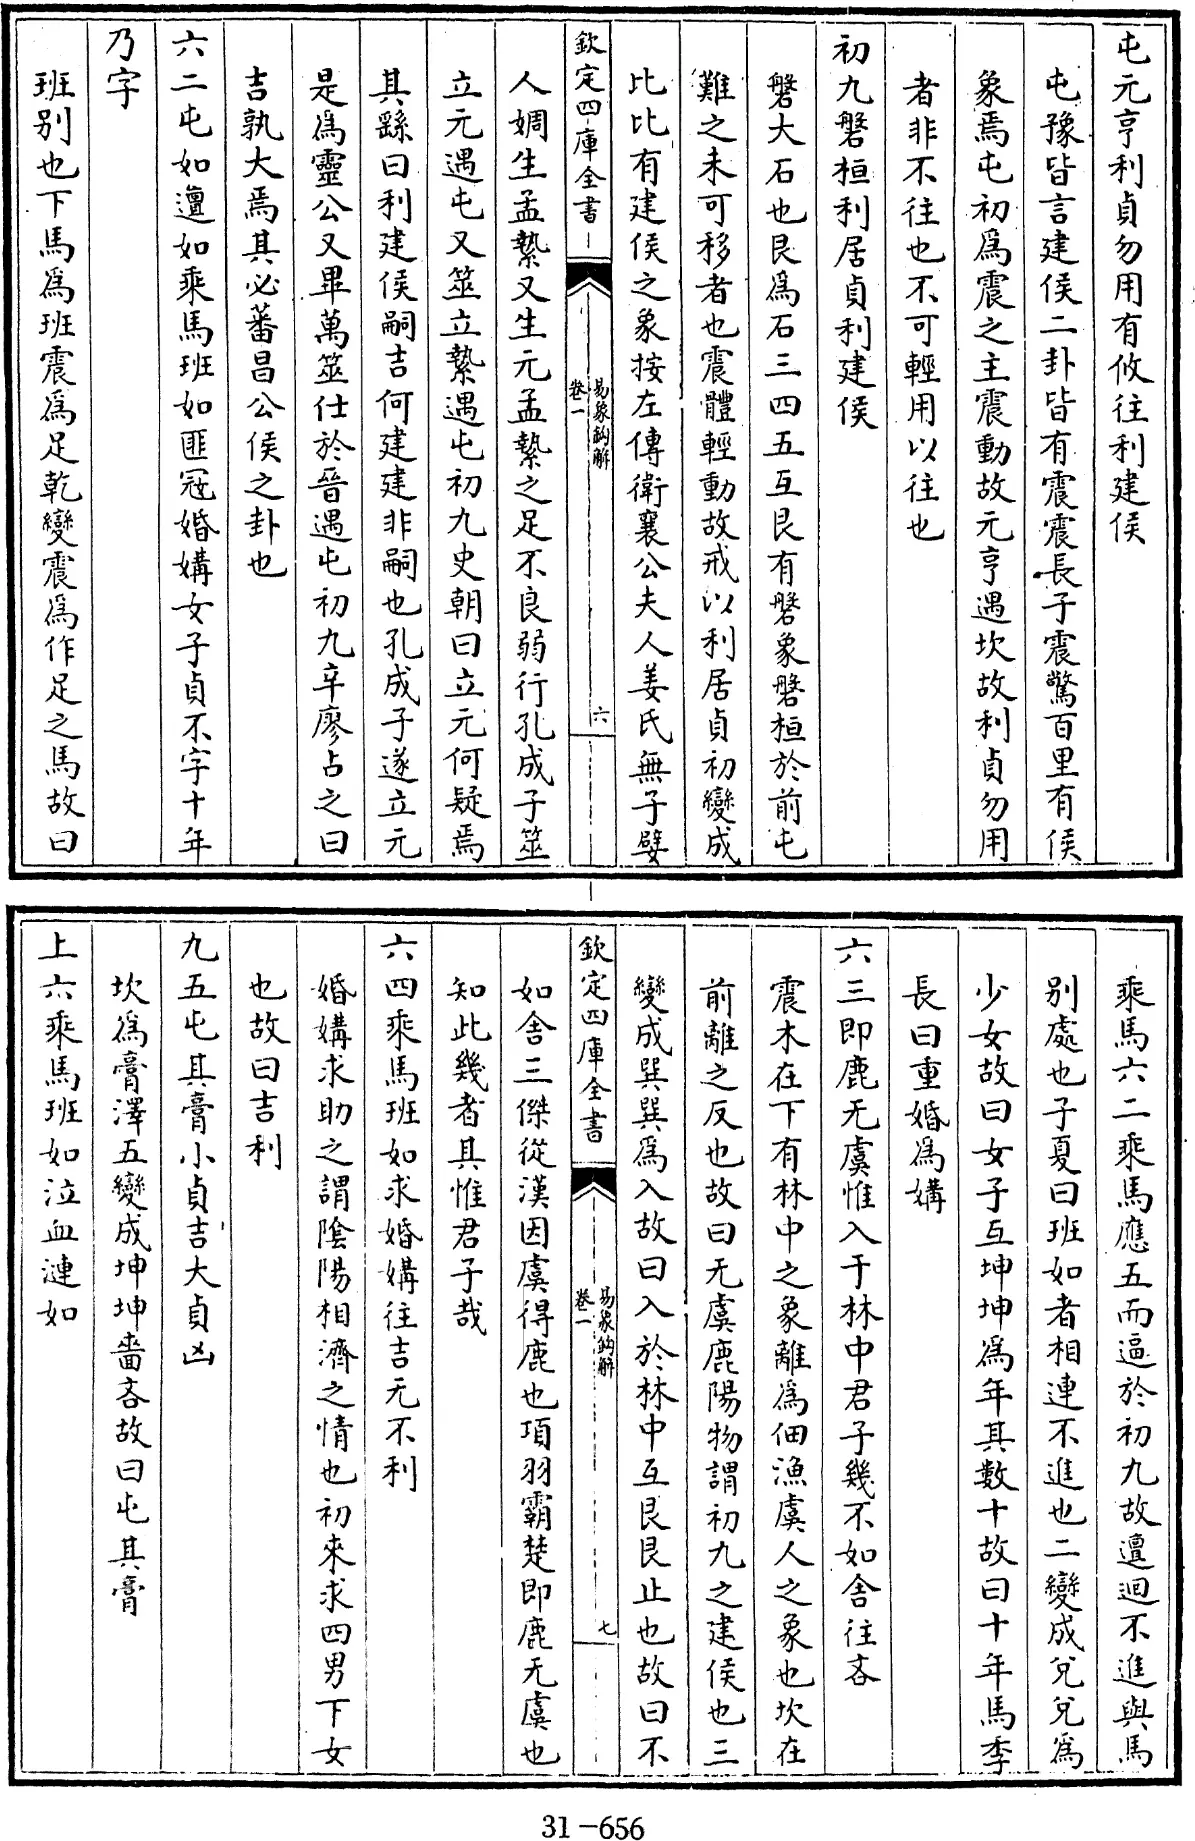 屯元亨利貞勿用有攸往利建侯
屯豫皆言建侯二卦皆有震震長子震驚百里有侯
象焉屯初爲震之主震動故元亨遇坎故利貞勿用
者非不往也不可輕用以往也
初九磐桓利居貞利建侯
磐大石也艮爲石三四五互艮有磐象磐桓於前屯
難之未可移者也震體輕動故戒以利居貞初變成
比比有建侯之象按左傳衛襄公夫人姜氏無子嬖
欽定四庫全書
易象鈎解
卷一
六
人婤生孟縶又生元孟縶之足不良弱行孔成子筮
立元遇屯又筮立縶遇屯初九史朝曰立元何疑焉
其繇曰利建侯嗣吉何建建非嗣也孔成子遂立元
是爲靈公又畢萬筮仕於晉遇屯初九辛廖占之曰
吉孰大焉其必蕃昌公侯之卦也
六二屯如邅如乘馬班如匪寇婚媾女子貞不字十年
乃字
班别也下馬爲班震爲足乾變震爲作足之馬故曰
乘馬六二乘馬應五而逼於初九故邅迴不進與馬
别處也子夏曰班如者相連不進也二變成兌兌爲
少女故曰女子互坤坤爲年其數十故曰十年馬季
長曰重婚爲媾
六三即鹿无虞惟入于林中君子幾不如舍往吝
震木在下有林中之象離爲佃漁虞人之象也坎在
前離之反也故曰无虞鹿陽物謂初九之建侯也三
變成巽巽爲入故曰入於林中互艮艮止也故曰不
欽定四庫全書
易象鈎解
卷一
七
如舍三傑從漢因虞得鹿也項羽霸楚即鹿无虞也
知此幾者其惟君子哉
六四乘馬班如求婚媾往吉无不利
婚媾求助之謂陰陽相濟之情也初來求四男下女
也故曰吉利
九五屯其膏小貞吉大貞凶
坎爲膏澤五變成坤坤嗇吝故曰屯其膏
上六乘馬班如泣血漣如
31-656